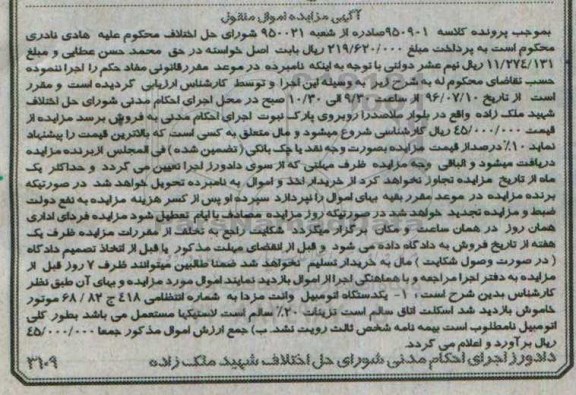 آگهی مزایده اموال منقول
بموجب پرونده کلاسه ۹۵۰۹۰۱صادره از شعبه ۹۵۰۰۲۱ شورای حل اختلاف محکوم علیه هادی نادری
محکوم است به پرداخت مبلغ ۲۱۹/۶۲۰/۰۰۰ ریال بابت اصل خواسته در حق محمد حسن عطایی و مبلغ
۱۱/۲۷٤/۱۳۱ ریال نیم عشر دولتی با توجه به اینکه نامبرده در موعد مقررقانونی مفاد حکم را اجرا ننموده
حسب تقاضای محکوم له به شرح زیر به وسیله این اجرا و توسط کارشناس ارزیابی گردیده است و مقرر
است از تاریخ ۹۶/۰۷/۱۰ از ساعت ۹/۳۰ الی ۱۰/۳۰ صبح در محل اجرای احکام مدنی شورای حل اختلاف
شهید ملک زاده واقع در بلوار ملاصدرا روبروی پارک نبوت اجرای احکام مدنی به فروش برسد مزایده از
قیمت ٤۵/۰۰۰/۰۰۰ ریال کارشناسی شروع میشود و مال متعلق به کسی است که بالاترین قیمت را پیشنهاد
نماید ۱۰٪ درصداز قیمت مزایده بصورت وجه نقد یا چک بانکی (تضمین شده ) فی المجلس ازبرنده مزایده
دریافت میشود و الباقی وجه مزایده ظرف مهلتی که از سوی دادورز اجرا تعیین می گردد و حداکثر یک
ماه از تاریخ مزایده تجاوز نخواهد کرد از خریدار اخذ و اموال به نامبرده تحویل خواهد شد در صورتیکه
برنده مزایده در موعد مقرر بقیه بهای اموال را نپردازد سپرده او پس از کسر هزینه مزایده به نفع دولت
ضبط و مزایده تجدید خواهد شد در صورتیکه روز مزایده مصادف با ایام تعطیل شود مزایده فردای اداری
همان روز در همان ساعت و مکان برگزار میگردد شکایت راجع به تخلف از مقررات مزایده ظرف یک
هفته از تاریخ فروش به دادگاه داده می شود و قبل از انقضای مهلت مذکور یا قبل از اتخاذ تصمیم دادگاه
( در صورت وصول شکایت ) مال به خریدار تسلیم نخواهد شد ضمنا طالبین میتوانند ظرف ۷ روز قبل از
مزایده به دفتر اجرا مراجعه و با هماهنگی اجرا از اموال بازدید نمایند اموال مورد مزایده و بهای آن طبق نظر
کارشناس بدین شرح است : ۱- یکدستگاه اتومبیل وانت مزدا به شماره انتظامی ٤۱۸ ج ۸۲ / ۶۸ موتور
خاموش بازدید شد اسکلت اتاق سالم است تزئینات ۲۰٪ سالم است لاستیکها مستعمل می باشد بطور کلی
اتومبیل نامطلوب است بیمه نامه شخص ثالث رویت نشد. ب) جمع ارزش اموال مذکور جمعا ٤۵/۰۰۰/۰۰۰
ریال برآورد و اعلام می گردد.
دادورز اجرای احکام مدنی شورای حل اختلاف شهید ملک زاده ۳۱۰۹